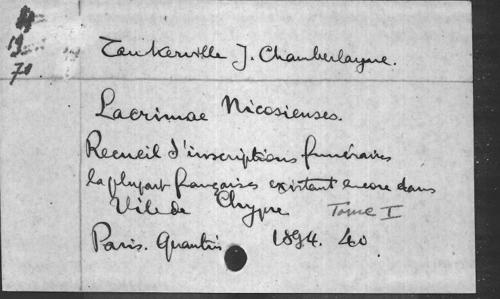 19
70
Tankerville J. Chamberlayne.
Lacrimae Nicosienses.
Recueil d'inscriptions funéraires
la plupart françaises existant encore dans
l'île de Chypre Tome I
Paris. Quantin 1894. 40